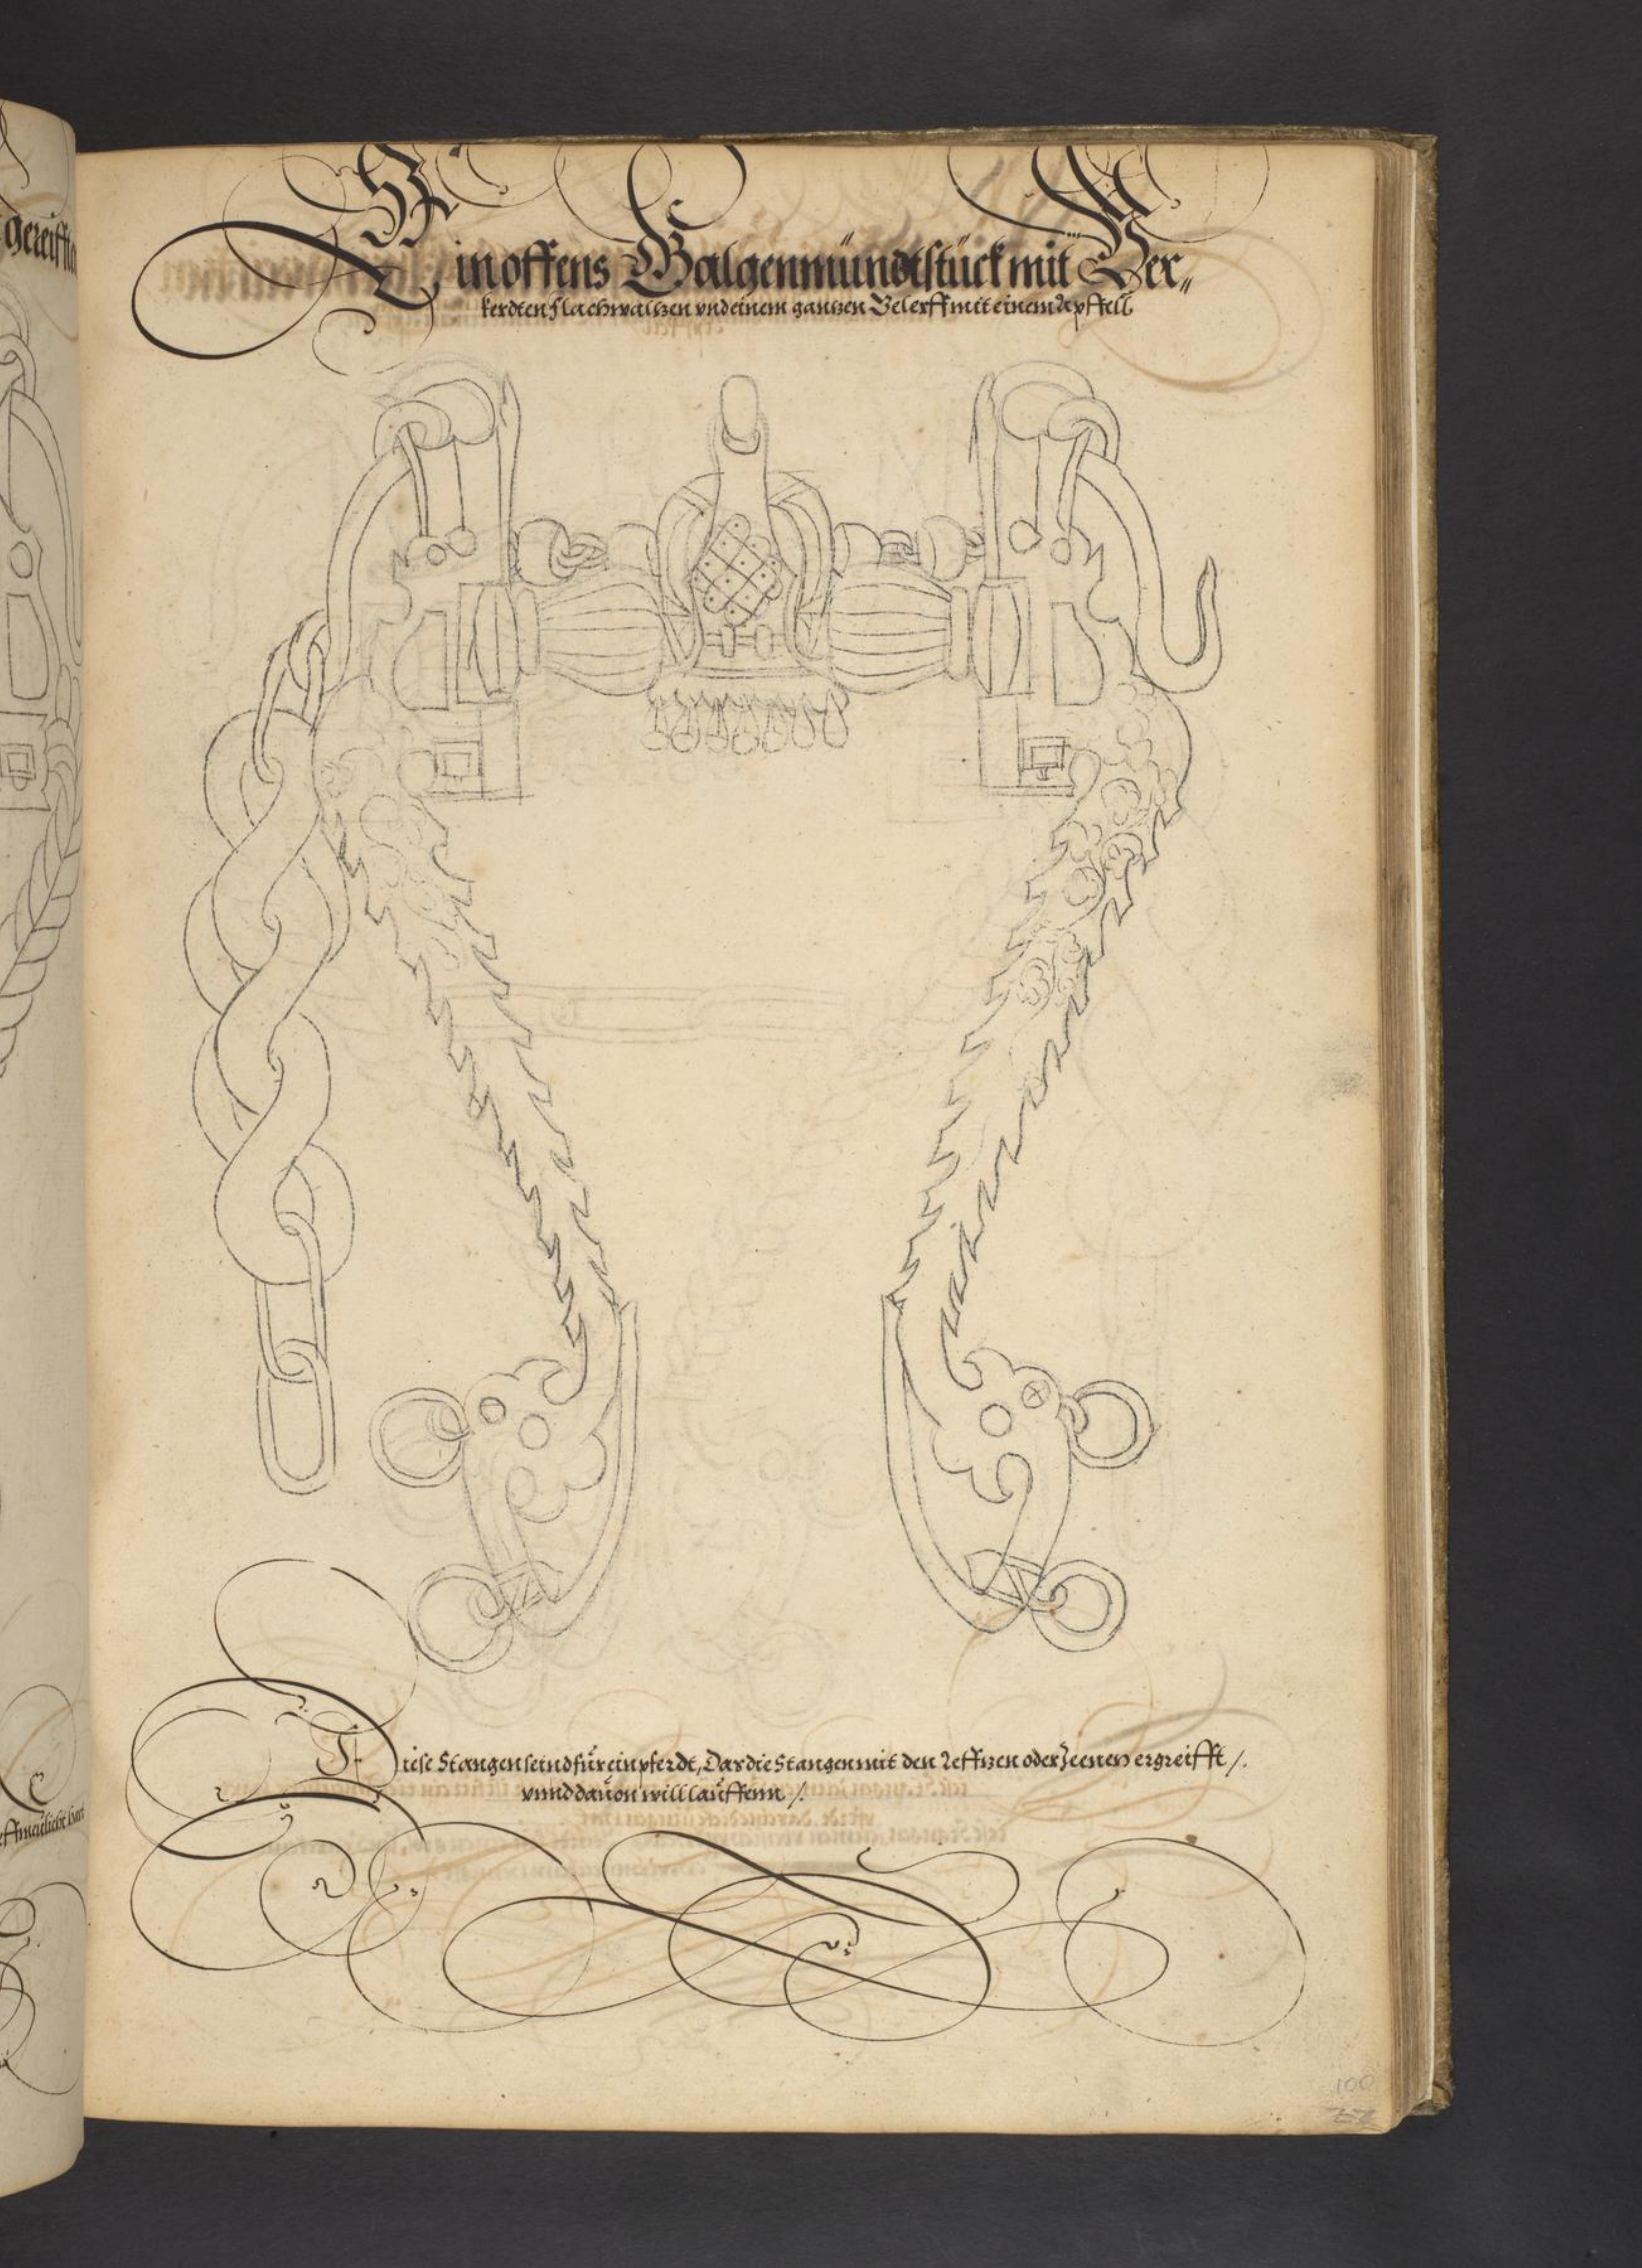 gereiffte
Ein offens Galgenmündtstück mit Ver„
kerdten Flachwaltzen vnd einem gantzen Gelerff mit einem Apffell
Diese Stangen seind für ein pferdt, Das die Stangen mit den Leffzen oder Zeenen ergreifft /.
vnnd dauon will lauffenn /.
100